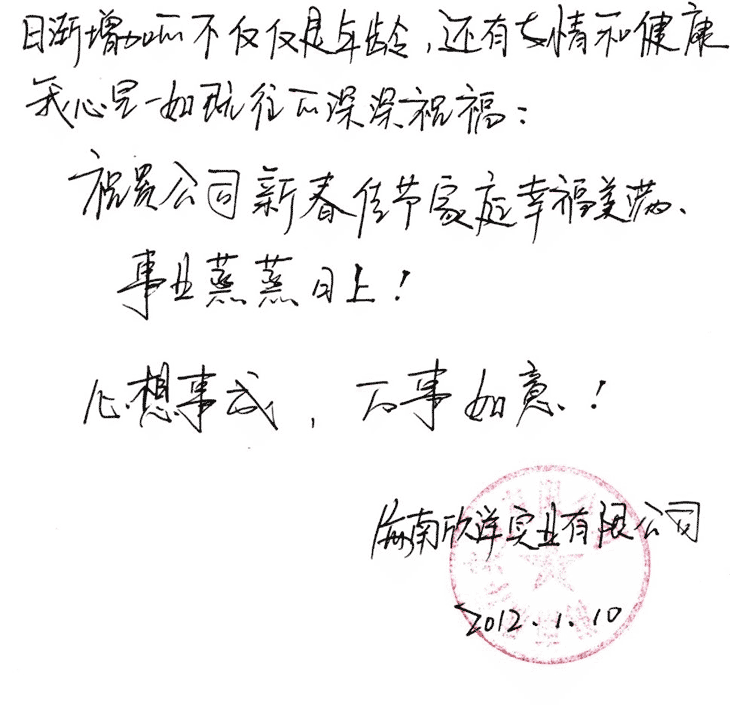 日渐增加的不仅仅是年龄,还有友情和健康
我心里一如既往的深深祝福:
祝贵公司新春佳节家庭幸福美满、
事业蒸蒸日上!
心想事成,万事如意!
海南欣洋实业有限公司
2012.1.10